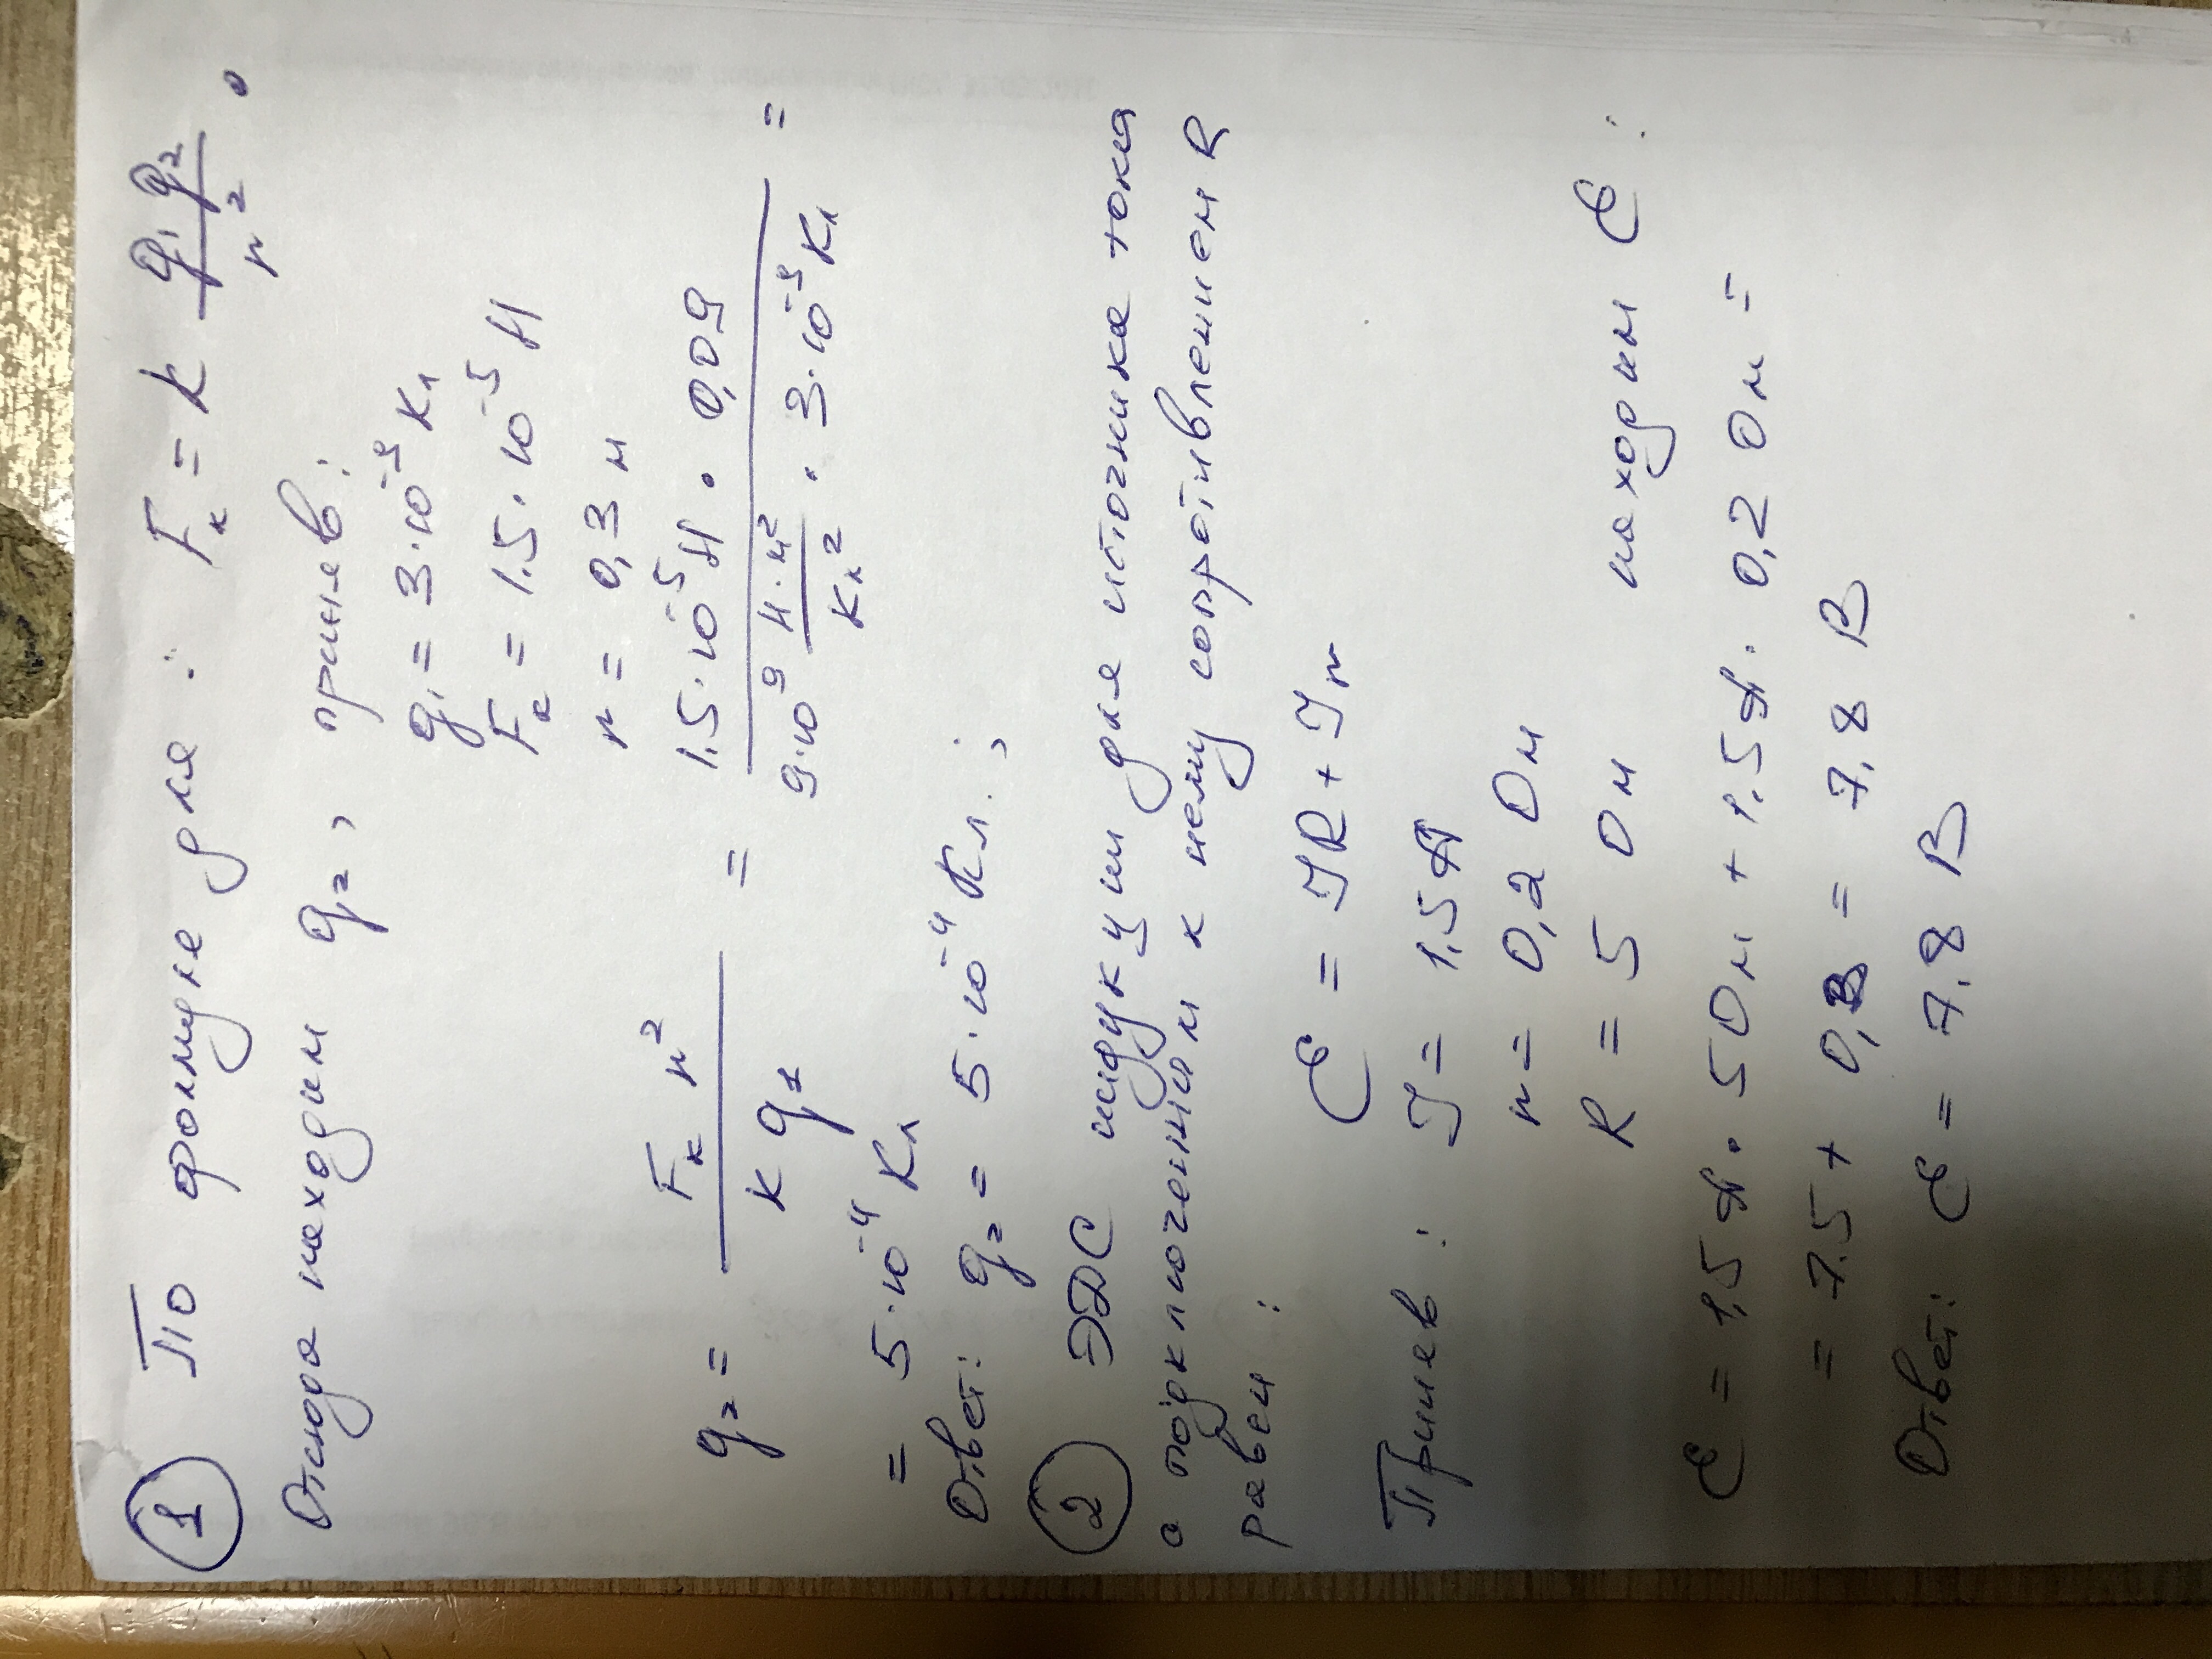 1 По формуле для : Fк = k q1 q2 / r²
Отсюда находим q2, приняв :
q1 = 3·10⁻⁹ Кл
Fк = 1.5·10⁻⁵ Н
r = 0,3 м
q2 = Fк r² / k q1 = 1.5·10⁻⁵ Н · 0,09 / 9·10⁹ Н·м²/Кл² · 3·10⁻⁹ Кл =
= 5·10⁻⁴ Кл
Ответ: q2 = 5·10⁻⁴ Кл. ;
2 ЭДС индукции для источника тока
с подключенным к нему сопротивлением R
равен :
ℰ = IR + Ir
Приняв : I = 1.5 А
r = 0,2 Ом
R = 5 Ом находим ℰ :
ℰ = 1,5 А · 5 Ом + 1.5 А · 0,2 Ом =
= 7.5 + 0,3 = 7.8 В
Ответ: ℰ = 7.8 В